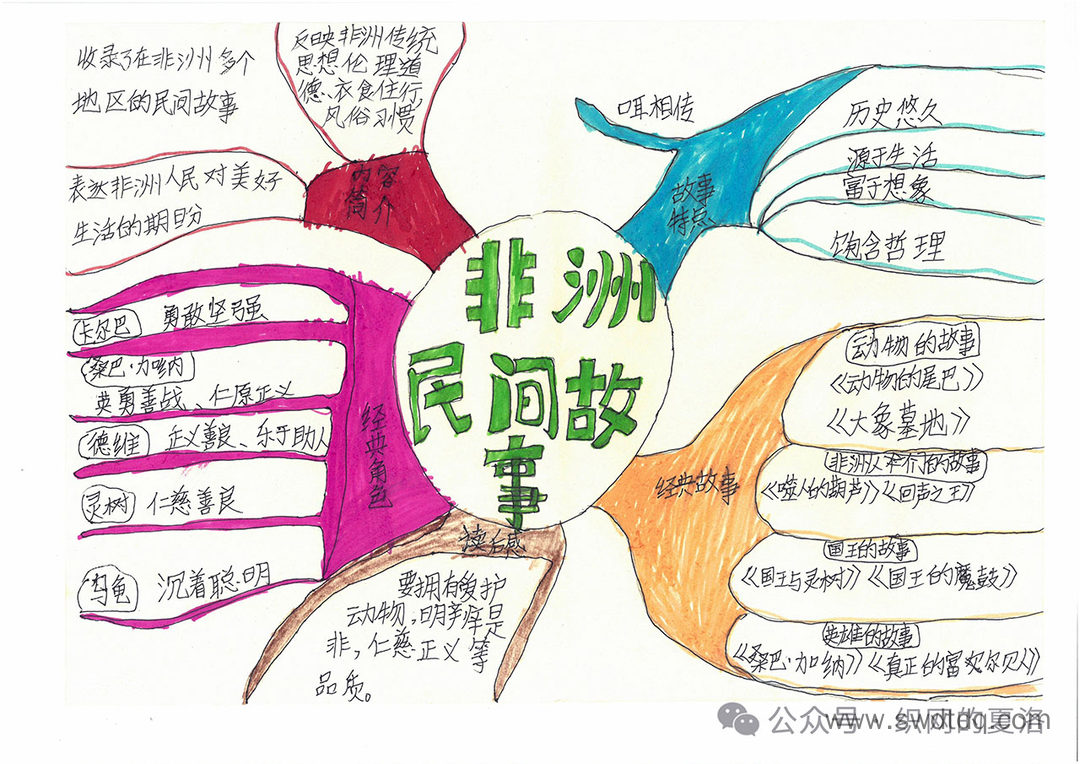 非洲
民间故
事
内容
简介
收录了在非洲多个
地区的民间故事
反映非洲传统
思想伦理道
德、衣食住行
风俗习惯
表达非洲人民对美好
生活的期盼
故事
特点
口耳相传
历史悠久
源于生活
富于想象
饱含哲理
经典角色
卡尔巴 勇敢坚强
桑巴·加纳
英勇善战、仁厚正义
德维 正义善良、乐于助人
灵树 仁慈善良
乌龟 沉着聪明
经典故事
动物的故事
《动物的尾巴》
《大象墓地》
非洲人和们的故事
《噬人的葫芦》《回声之王》
国王的故事
《国王与灵树》《国王的魔鼓》
英雄的故事
《桑巴·加纳》
读后感
要拥有爱护
动物,明辨是
非,仁慈正义等
品质。
公众号 织网的夏洛